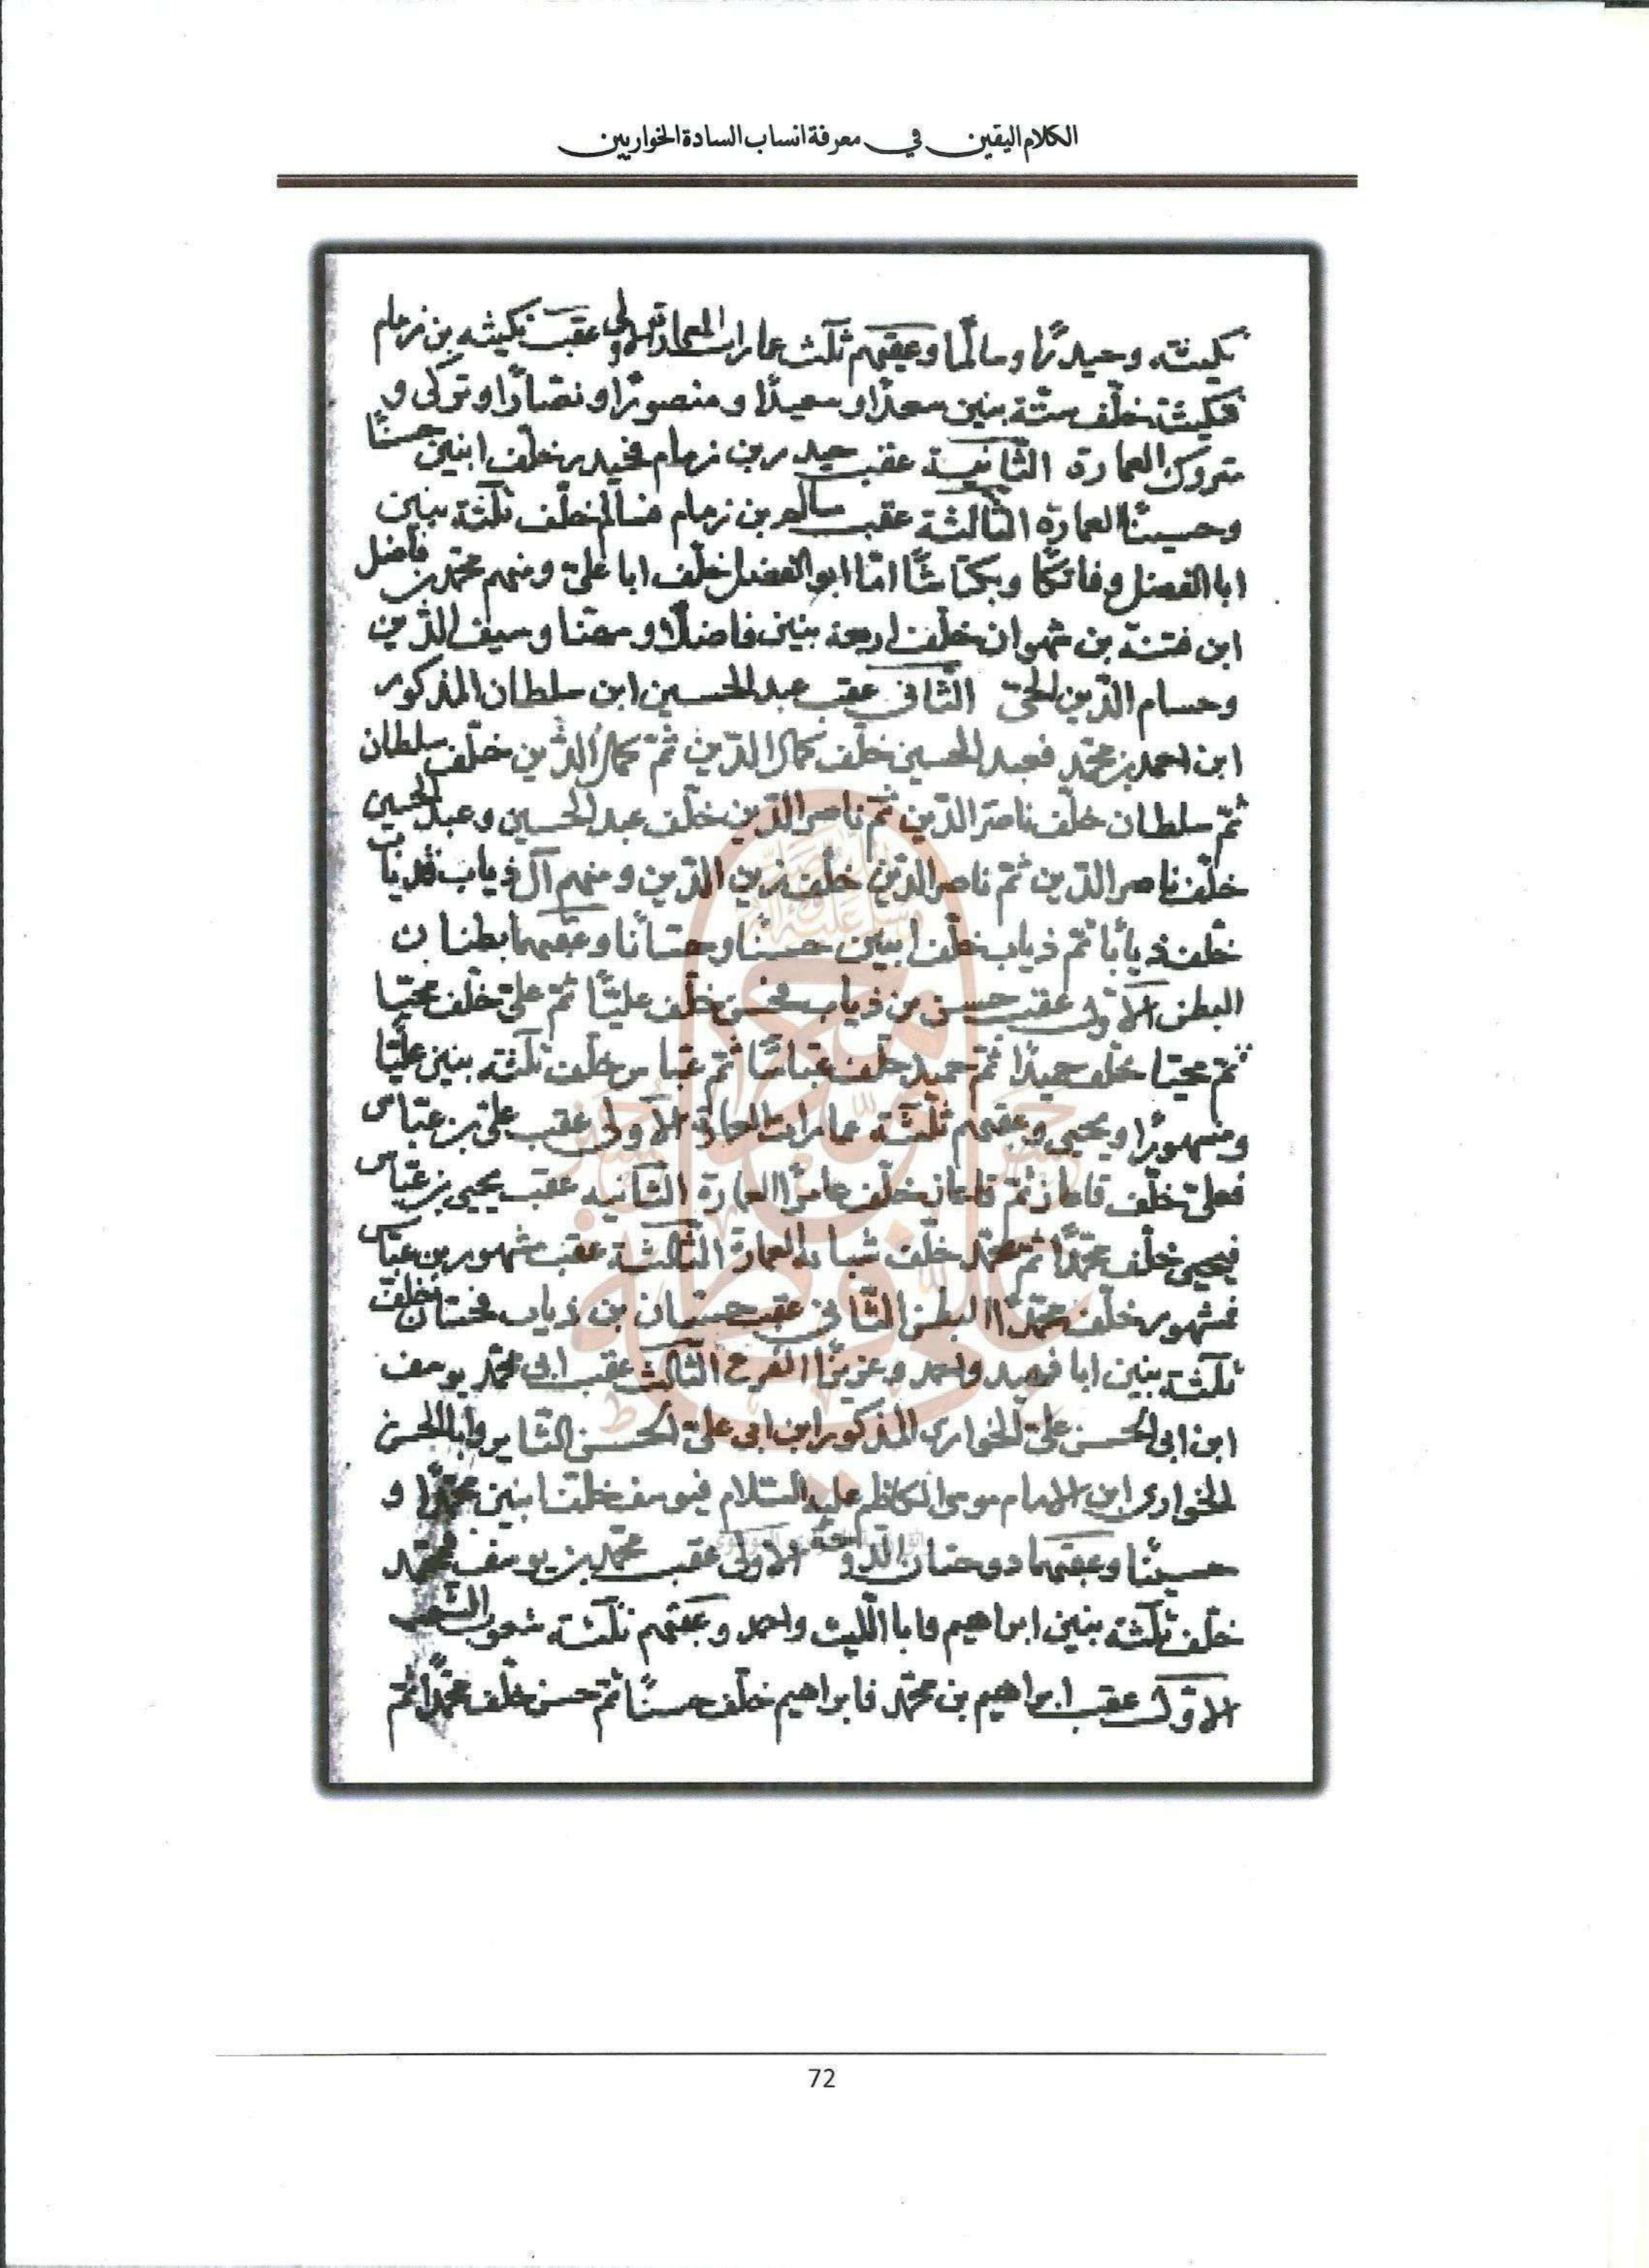 الكلام اليقين في معرفة انساب السادة الخواريين
نكيثة وحيدرًا وسالمًا وعقبهم ثلث عمارات العمارة الاولى عقب نكيثه بن زهام
فنكيثة خلّف ستّة بنين سعدًا وسعيدًا ومنصورًا ونصّارًا وتركى و
متروك العمارة الثانية عقب حيدر بن زهام فحيدر خلّف ابنين حسنًا
وحسينًا العمارة الثالثة عقب سالم بن زهام فسالم خلّف ثلثة بنين
ابا الفضل وفاتكًا وبكتاشًا امّا ابو الفضل خلّف ابا علىّ ومنهم محمّد بن فاضل
ابن فتنة بن شهوان خلّف اربعة بنين فاضلًا ومهنا وسيف الدّين
وحسام الدّين الحىّ الثّانى عقب عبد الحسين ابن سلطان المذكور
ابن احمد بن محمّد فعبد الحسين خلّف كمال الدّين ثمّ كمال الدّين خلّف سلطان
ثمّ سلطان خلّف ناصر الدّين ثمّ ناصر الدّين خلّف عبد الحسين وعبد الحسين
خلّف ناصر الدّين ثمّ ناصر الدّين خلّف زين الدّين ومنهم آل ذياب فذياب
خلّف ذيابًا ثمّ ذياب خلّف ابنين حسنًا وحسّانًا وعقبهما بطنان
البطن الاوّل عقب حسن بن ذياب فحسن خلّف عليًّا ثمّ علىّ خلّف محيّا
ثمّ محيّا خلّف حميدًا ثمّ حميد خلّف عبّاسًا ثمّ عباس خلّف ثلثه بنين عليًّا
ومشهورًا ويحيى وعقبهم ثلثة عمارات العمارة الاولى عقب علىّ بن عبّاس
فعلىّ خلّف خلّف عامرًا العمارة الثانيه عقب يحيى بن عبّاس
فيحيى خلّف محمّدًا ثمّ محمّد خلّف العمارة الثّالثة عقب مشهور بن عبّاس
فمشهور خلّف محمّدًا البطن الثّانى عقب حسّان بن ذياب فحسّان خلّف
ثلثة بنين ابا فهيد واحمد وعزيزًا الفرع الثّالث عقب ابى محمّد يوسف
ابن ابى الحسن علىّ الخوارى المذكور ابن ابى علىّ الحسن الثّاير وابا الحسن
الخوارى ابن الامام موسى الكاظم عليه السّلام فيوسف خلّف ابنين محمّدًا و
حسينًا وعقبهما دوحتان الاولى عقب محمّد بن يوسف فمحمّد
خلّف ثلثة بنين ابراهيم وابا اللّيث واحمد وعقبهم ثلثة شعوب الشّعب
الاوّل عقب ابراهيم بن محمّد فابراهيم خلّف حسنًا ثمّ حسن خلّف محمّدًا ثمّ
72